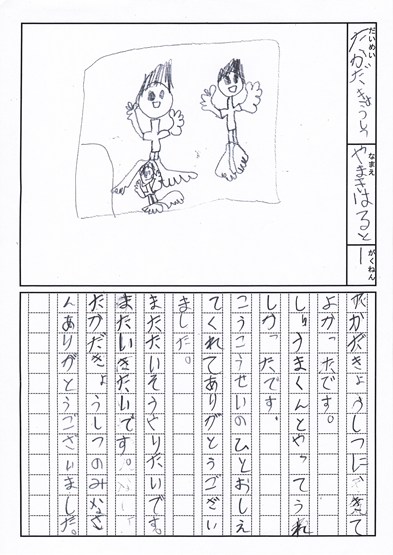 だいめい
たかだきょうしつ
なまえ
やまきはると
がくねん
1
たかだきょうしつにきて
よかったです。
しゅうまくんとやってうれ
しかったです。
こうこうせいのひとおしえ
てくれてありがとうござい
ました。
またたいそうやりたいです。
またいきたいです。
たかだきょうしつのみなさ
んありがとうございました。